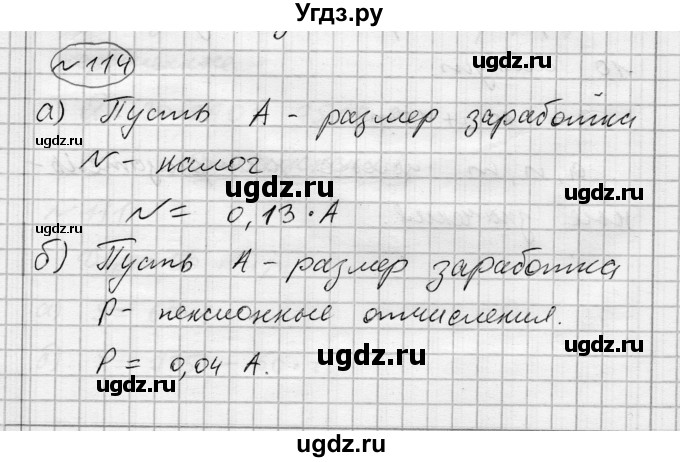 Угдз.ру
№ 114
а) Пусть А - размер заработка
N - налог
N = 0,13 · А
б) Пусть А - размер заработка
Р - пенсионные отчисления.
Р = 0,04 А.
ugdz.ru
ugdz.ru
ugdz.ru
ugdz.ru
ugdz.ru
ugdz.ru
ugdz.ru
ugdz.ru
ugdz.ru
ugdz.ru